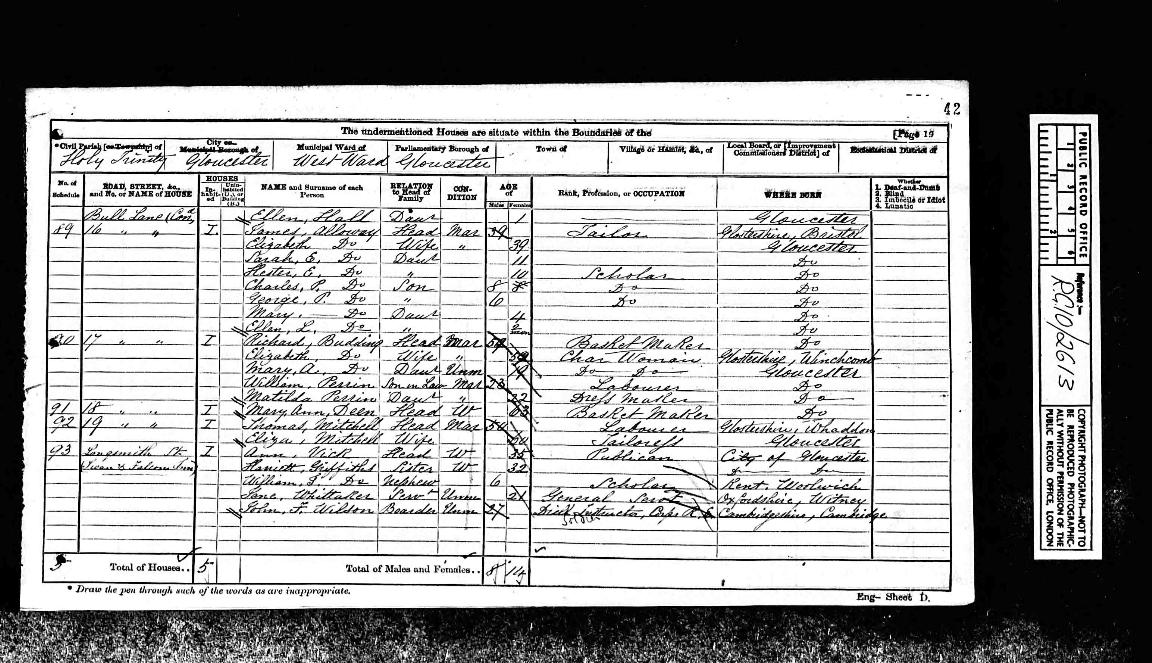 42
The undermentioned Houses are situate within the Boundaries of the
[Page 19
*Civil Parish [or Township] of
City or Municipal Borough of
Municipal Ward of
Parliamentary Borough of
Town of
Village or Hamlet, &c., of
Local Board, or [Improvement Commissioners District] of
Ecclesiastical District of
Holy Trinity Gloucester West Ward Gloucester
No. of Schedule
ROAD, STREET, &c., and No. or NAME of HOUSE
HOUSES
Inhabited
Uninhabited (U.), or Building (B.)
NAME and Surname of each Person
RELATION to Head of Family
CONDITION
AGE of
Males Females
Rank, Profession, or OCCUPATION
WHERE BORN
Whether
1. Deaf-and-Dumb
2. Blind
3. Imbecile or Idiot
4. Lunatic
Bull Lane (Cont Ellen, Hall Daur 1 Gloucester
89 16 " " I James, Alloway Head Mar 39 Tailor Glostershire, Bristol
Elizabeth Do Wife " 39 Gloucester
Sarah, E. Do Daur 11 Do
Hester, E. Do " 10 Scholar Do
Charles, P. Do Son 8 Do Do
George, P. Do " 6 Do Do
Mary, Do Daur 4 Do
Ellen, L. Do " 2 mon Do
90 17 " " I Richard, Budding Head Mar Basket Maker Do
Elizabeth, Do Wife " Char Woman Glostershire, Winchcomb
Mary, A. Do Daur Unm 19 Do Do Gloucester
William, Perrin Son in Law Mar 23 Labourer Do
Matilda Perrin Daur " 22 Dress Maker Do
91 18 " " I Mary Ann, Deen Head W 63 Basket Maker Do
92 19 " " I Thomas, Mitchell Head Mar Labourer Glostershire, Whaddon
Eliza, Mitchell Wife 50 Tailoress Gloucester
93 Longsmith St. I Ann, Vick Head W 35 Publican City of Gloucester
Swan & Falcon Inn) Harriett, Griffiths Sister W 32 Do Do
William, Do Nephew 6 Scholar Kent, Woolwich
Jane, Whittaker Servt Unm 21 General Servt Oxfordshire, Witney
John, F. Wildon Boarder Unm 27 Drill Instructor, Corps R. E Cambridgeshire, Cambridge
Soldier
5 Total of Houses.. 5 Total of Males and Females.. 8 14
* Draw the pen through such of the words as are inappropriate.
Eng- Sheet D.
PUBLIC RECORD OFFICE
1 2 3 4 5 6
Reference :-
RG10/2613
COPYRIGHT PHOTOGRAPH—NOT TO
BE REPRODUCED PHOTOGRAPHIC-
ALLY WITHOUT PERMISSION OF THE
PUBLIC RECORD OFFICE, LONDON